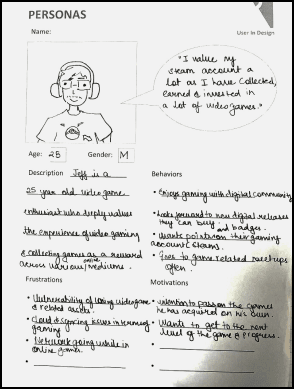 PERSONAS
User In Design
Name:
"I value my
steam account a
lot as I have collected,
earned & invested in
a lot of videogames."
Age: 25 Gender: M
Description Jeff is a
25 year old video game
enthusiast who deeply values
the experience of video gaming
& collecting games as a reward
across various online mediums.
Behaviors
• Enjoys gaming with digital community
• Looks forward to new digital releases
they can buy.
• Wants points and badges on their gaming
account claims.
• Goes to game related meetups
often.
Frustrations
• Vulnerability of losing videogame
& related assets.
• Cloud & syncing issues in terms of
gaming
• Network going while in
online games.
•
Motivations
• Intention to pass on the games
he has acquired on his own.
• Wants to get to the next
level of the game & progress.
•
•